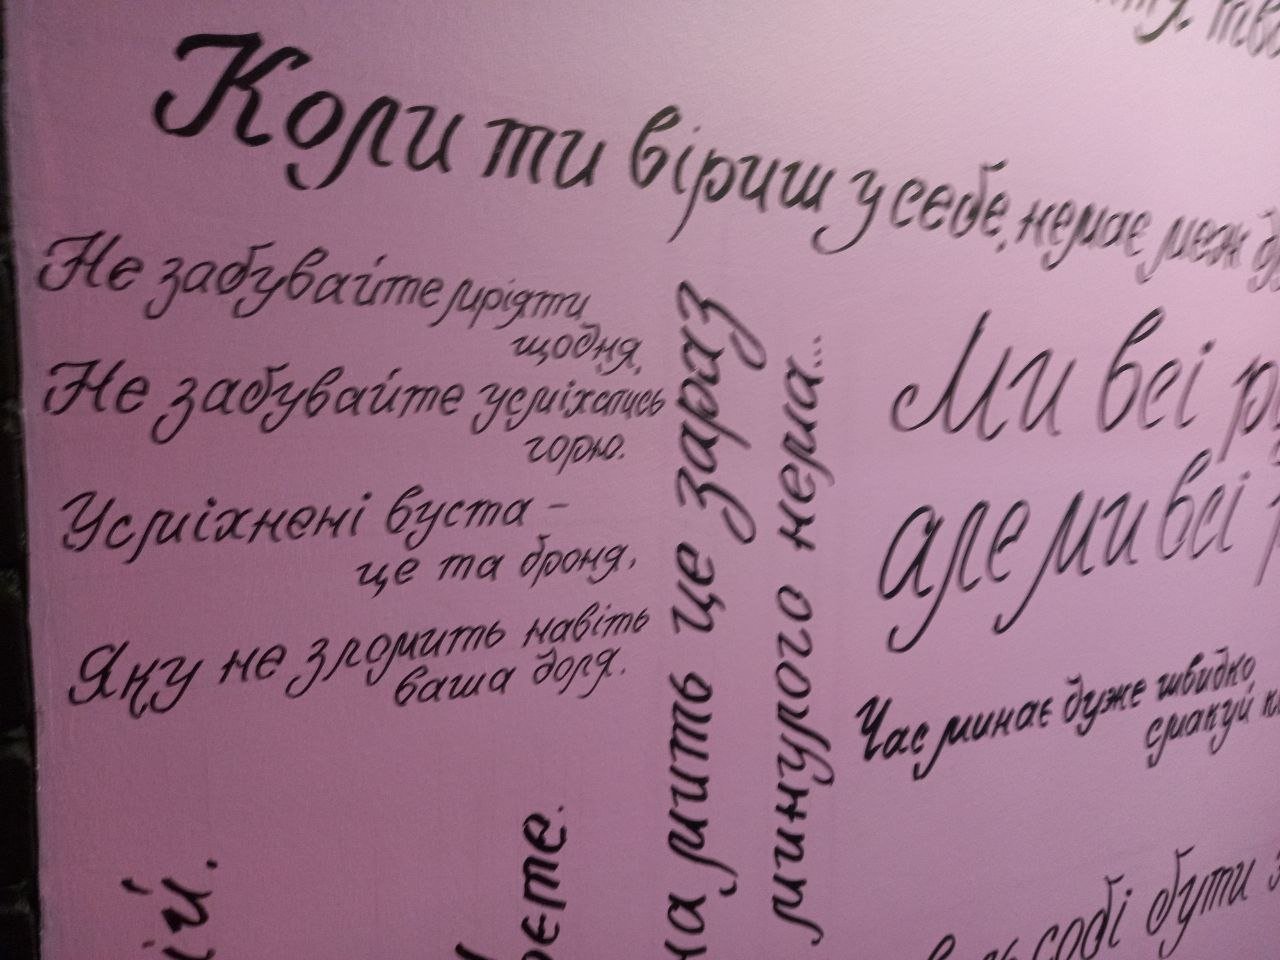 Коли ти віриш у себе, немає меж
Не забувайте мріяти
щодня,
Не забувайте усміхатись
горю.
Усміхнені вуста –
це та броня,
Яку не зломить навіть
ваша доля.
на мить це зараз
минулого нема...
Ми всі
але ми всі
Час минає дуже швидко
смакуй
собі бути